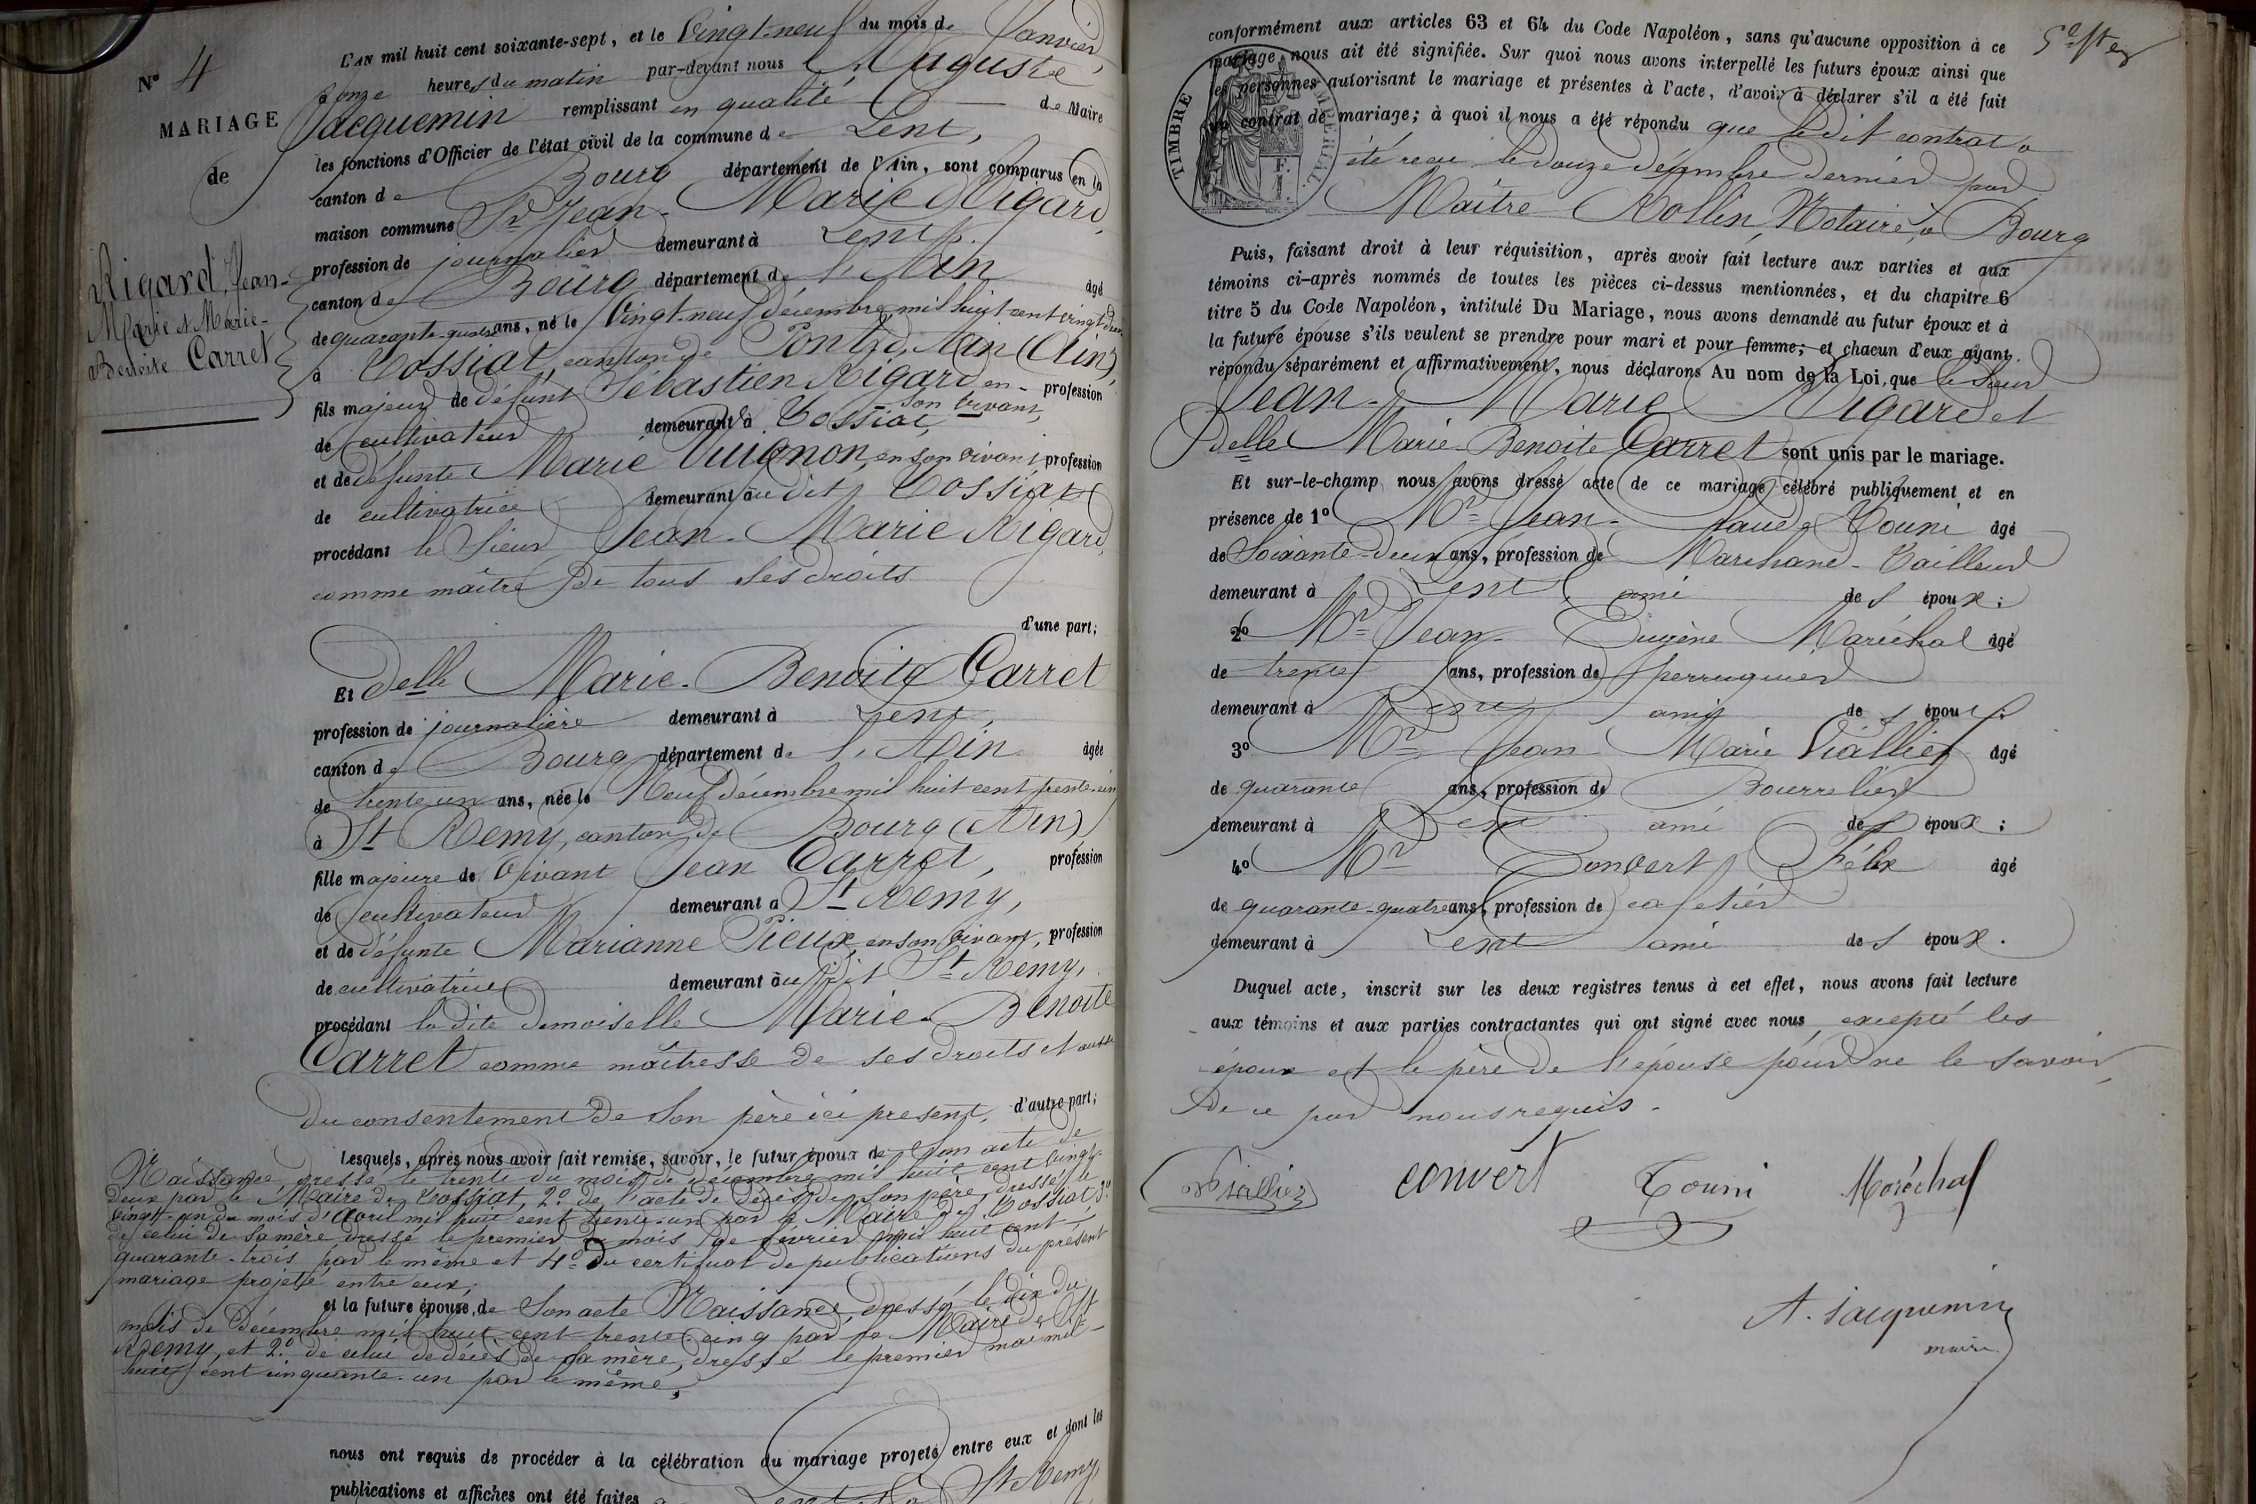 N° 4
MARIAGE
de
Rigard, Jean-
Marie et Marie-
Benoite Carret
L'AN mil huit cent soixante-sept, et le Vingt-neuf du mois de Janvier,
à onze heures du matin par-devant nous Auguste
Jacquemin remplissant en qualité de Maire
les fonctions d'Officier de l'état civil de la commune de Lent,
canton de Bourg département de l'Ain, sont comparus en la
maison commune Sr Jean-Marie Rigard,
profession de journalier demeurant à Lent,
canton de Bourg département de l'Ain âgé
de quarante-quatre ans, né le Vingt-neuf décembre mil huit cent vingt-deux
à Tossiat, canton de Pont d'Ain (Ain),
fils majeur de défunt Sébastien Rigard en profession
son vivant,
de cultivateur demeurant à Tossiat,
et de défunte Marie Vuignon, en son vivant, profession
de cultivatrice demeurant au dit Tossiat
procédant le Sieur Jean-Marie Rigard,
comme maître de tous ses droits
d'une part;
Et delle Marie-Benoite Carret
profession de journalière demeurant à Lent,
canton de Bourg département de l'Ain âgée
de trente un ans, née le Neuf décembre mil huit cent trente-cinq
à St Remy, canton de Bourg (Ain)
fille majeure de vivant Jean Carret, profession
de cultivateur demeurant à St Remy,
et de défunte Marianne Pieux, en son vivant, profession
de cultivatrice demeurant au dit St Remy,
procédant la dite demoiselle Marie-Benoite
Carret comme maîtresse de ses droits et aussi
du consentement de son père ici présent, d'autre part;
Lesquels, après nous avoir fait remise, savoir, le futur époux de son acte de
Naissance, dressé le trente du mois de décembre mil huit cent vingt-
deux par le Maire de Tossiat, 2° de l'acte de décès de son père, dressé le
vingt-un du mois d'avril mil huit cent trente-un par le Maire de Tossiat 3°
de celui de sa mère dressé le premier du mois de février mil huit cent
quarante-trois par le même et 4° du certificat de publications du présent
mariage projeté entre eux;
et la future épouse, de son acte Naissance, dressé le dix du
mois de Décembre mil huit cent trente-cinq par le Maire de St
Remy, et 2° de celui de décès de sa mère, dressé le premier mai mil-
huit cent cinquante-un par le même,
nous ont requis de procéder à la célébration du mariage projeté entre eux et dont les
publications et affiches ont été faites à Lent et à St Remy,
5e et der
conformément aux articles 63 et 64 du Code Napoléon, sans qu'aucune opposition à ce
mariage nous ait été signifiée. Sur quoi nous avons interpellé les futurs époux ainsi que
les personnes autorisant le mariage et présentes à l'acte, d'avoir à déclarer s'il a été fait
un contrat de mariage; à quoi il nous a été répondu que le dit contrat a
été recu le douze décembre dernier par
Maître Rollin, Notaire, à Bourg
TIMBRE IMPÉRIAL
Puis, faisant droit à leur réquisition, après avoir fait lecture aux parties et aux
témoins ci-après nommés de toutes les pièces ci-dessus mentionnées, et du chapitre 6
titre 5 du Code Napoléon, intitulé Du Mariage, nous avons demandé au futur époux et à
la future épouse s'ils veulent se prendre pour mari et pour femme; et chacun d'eux ayant
répondu séparément et affirmativement, nous déclarons Au nom de la Loi, que le Sieur
Jean-Marie Rigard et
Delle Marie-Benoite Carret sont unis par le mariage.
Et sur-le-champ nous avons dressé acte de ce mariage célébré publiquement et en
présence de 1° Mr Jean-Claude Touni âgé
de Soixante-deux ans, profession de Marchand-Tailleur
demeurant à Lent ami des époux;
2° Mr Jean-Eugène Maréchal âgé
de trente ans, profession de perruquier
demeurant à Lent ami des époux;
3° Mr Jean Marie Viallier âgé
de quarante ans, profession de Bourrelier
demeurant à Lent ami des époux;
4° Mr Convert Félix âgé
de quarante-quatre ans, profession de cafetier
demeurant à Lent ami des époux.
Duquel acte, inscrit sur les deux registres tenus à cet effet, nous avons fait lecture
aux témoins et aux parties contractantes qui ont signé avec nous, excepté les
époux et le père de l'épouse pour ne le savoir
de ce par nous requis.
Viallier convert Touni Maréchal
A. Jacquemin
maire